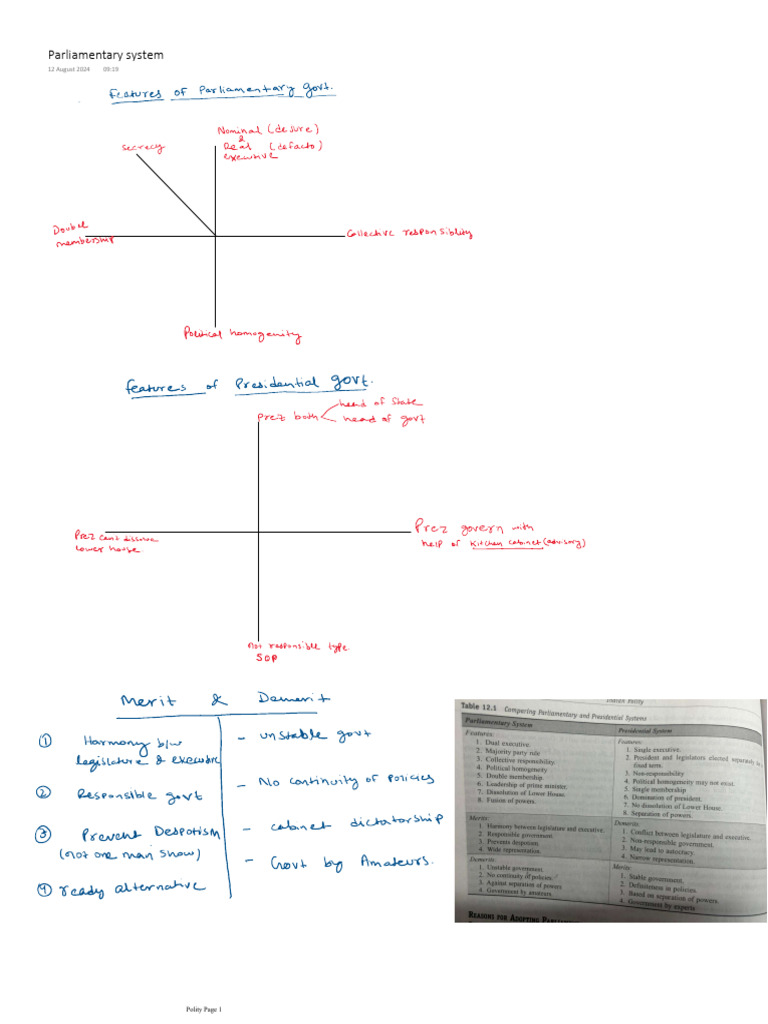 Parliamentary system
12 August 2024 09:19
Features of Parliamentary govt.
Nominal (dejure)
&
Real (defacto)
executive
secrecy
Doubel
membership
Collective responsiblity
Political homogenity
features of Presidential govt.
Prez both
head of state
head of govt
Prez govern with
help of kitchen cabinet (advisory)
Prez cant
lower house
not responsible type
SOP
Merit & Demerit
① Harmony b/w
legislature & executive
② Responsible govt
③ Prevent Despotism
(not one man show)
④ ready alternative
- unstable govt
- No continuity of Policies
- cabinet dictatorship
- Govt by Amateurs.
Indian Polity
Table 12.1 Comparing Parliamentary and Presidential Systems
Parliamentary System
Features:
1. Dual executive.
2. Majority party rule
3. Collective responsibility.
4. Political homogeneity
5. Double membership.
6. Leadership of prime minister.
7. Dissolution of Lower House.
8. Fusion of powers.
Presidential System
Features:
1. Single executive.
2. President and legislators elected separately
fixed term.
3. Non-responsibility
4. Political homogeneity may not exist.
5. Single membership
6. Domination of president.
7. No dissolution of Lower House.
8. Separation of powers.
Merits:
1. Harmony between legislature and executive.
2. Responsible government.
3. Prevents despotism.
4. Wide representation.
Demerits:
1. Conflict between legislature and executive.
2. Non-responsible government.
3. May lead to autocracy.
4. Narrow representation.
Demerits:
1. Unstable government.
2. No continuity of policies.
3. Against separation of powers
4. Government by amateurs.
Merits:
1. Stable government.
2. Definiteness in policies.
3. Based on separation of powers.
4. Government by experts
REASONS FOR ADOPTING
Polity Page 1